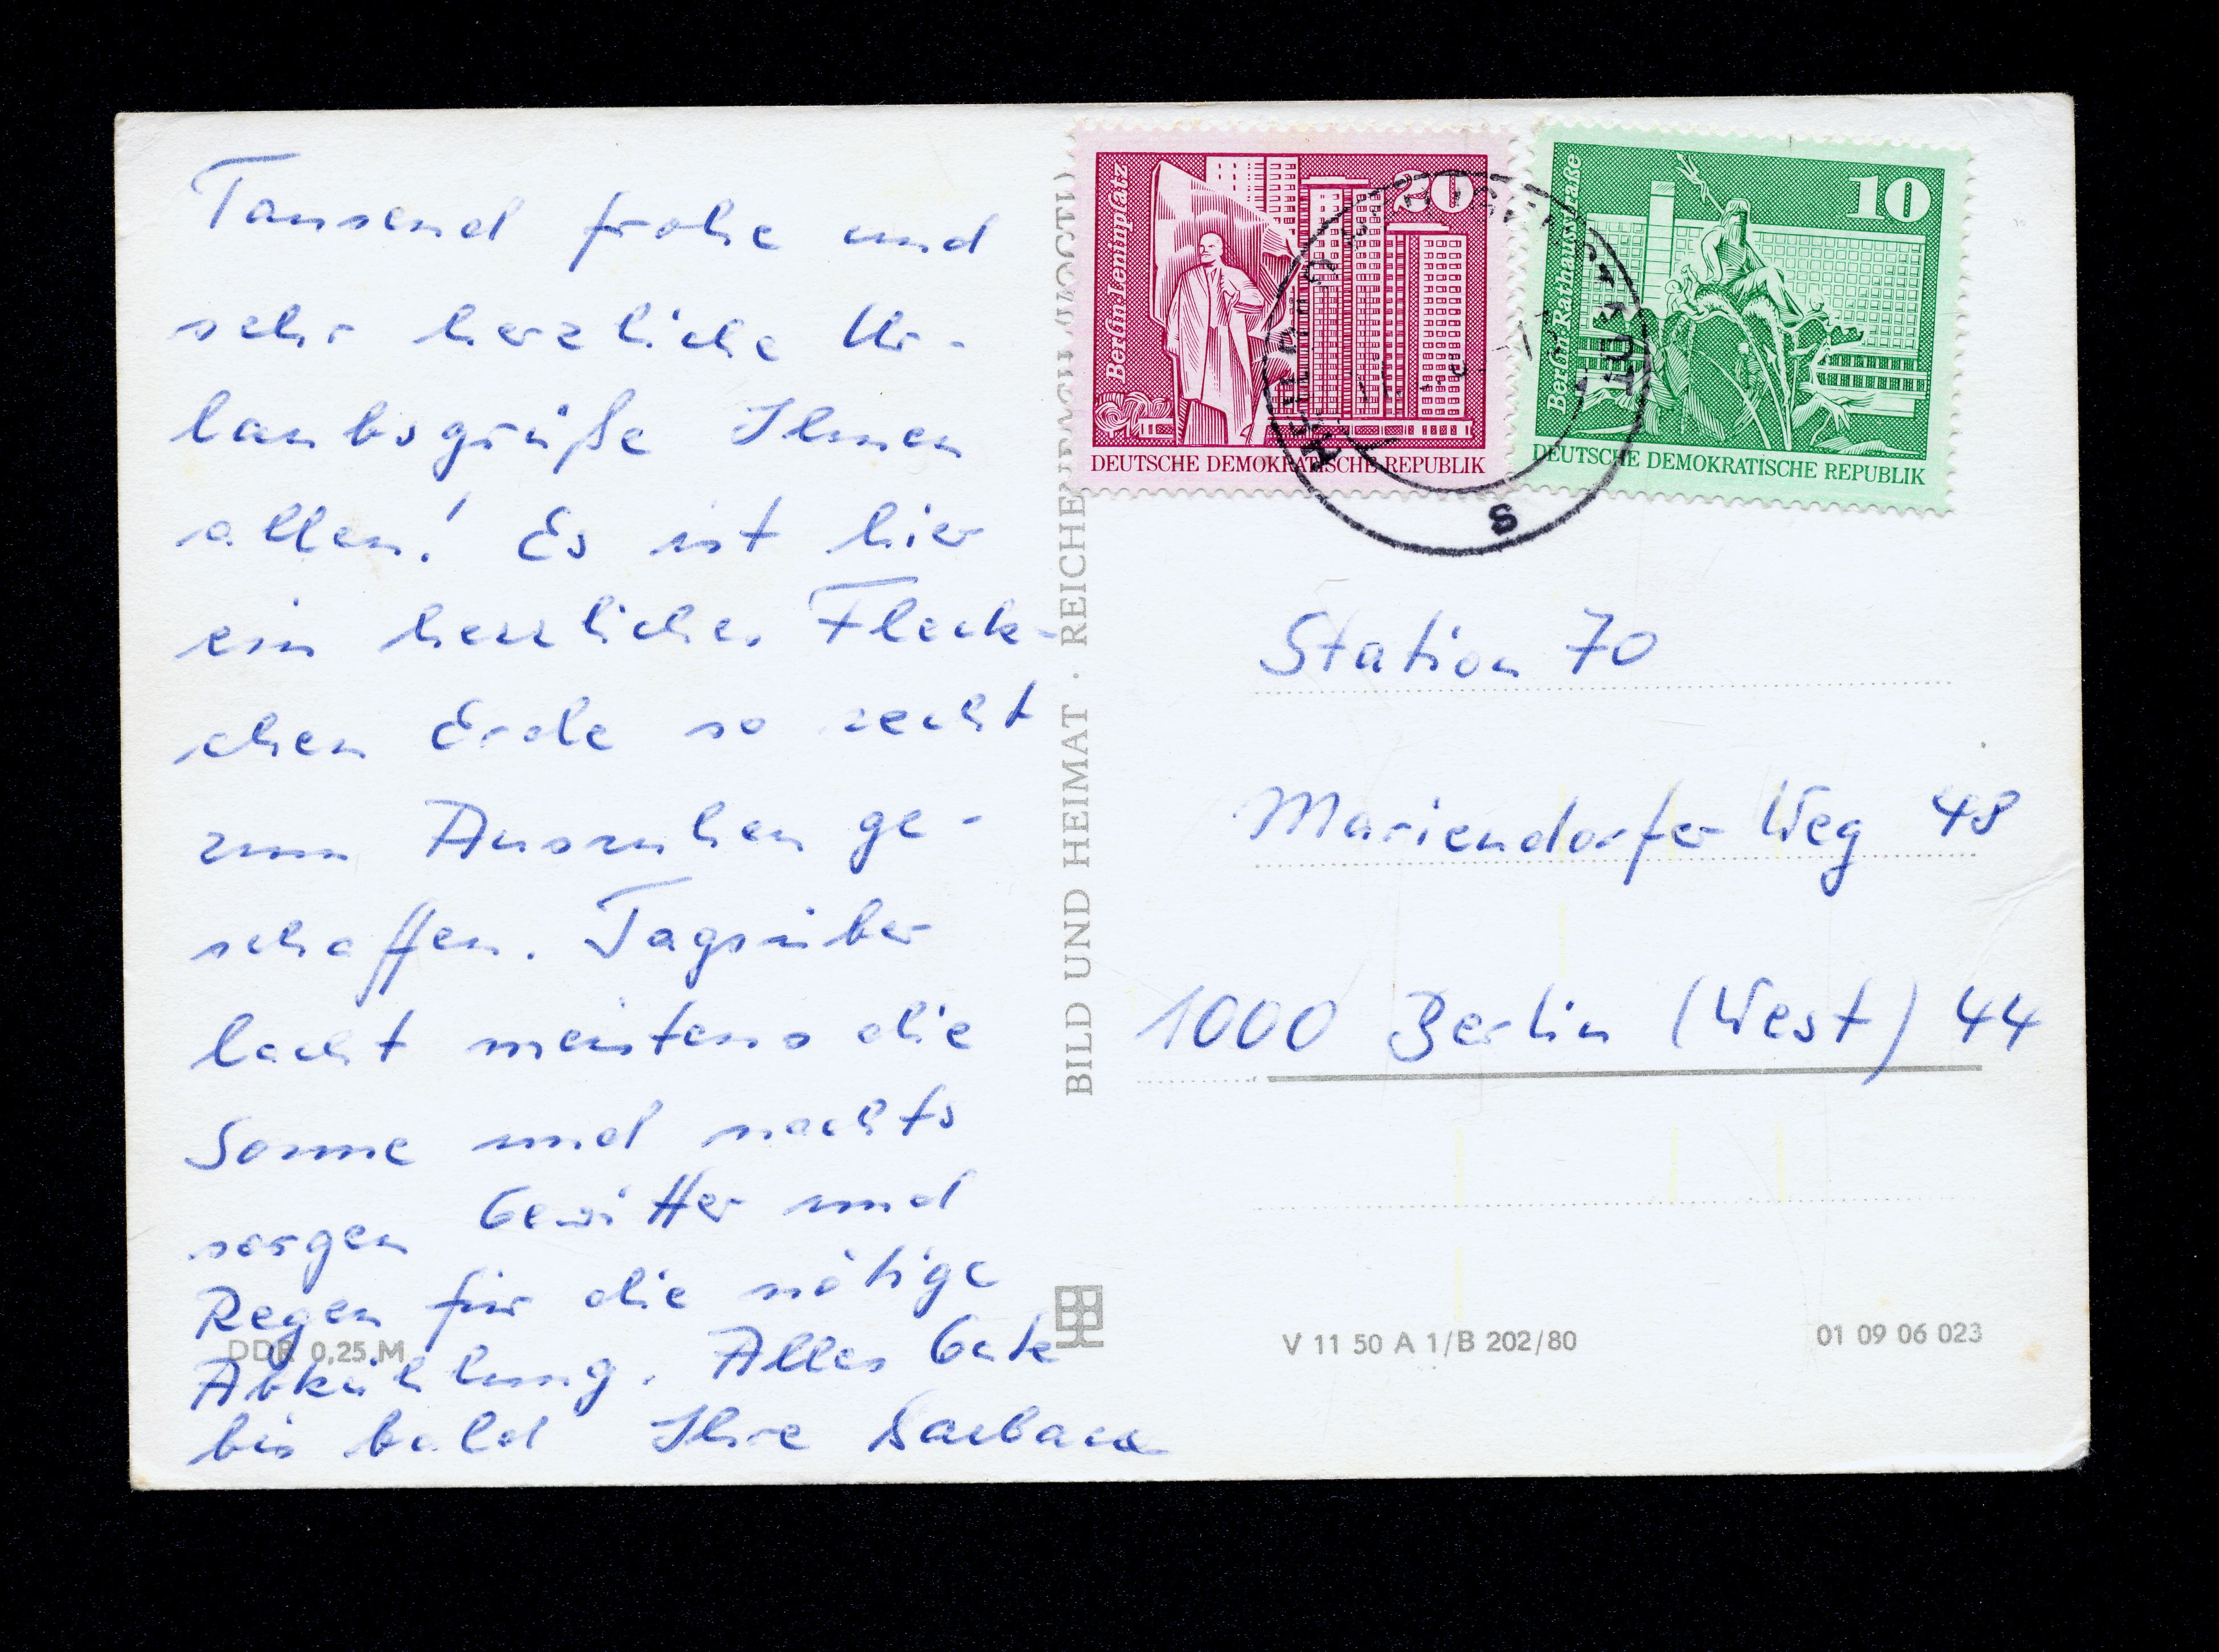 Tausend frohe und
sehr herzliche Ur-
laubsgrüße Ihnen
allen! Es ist hier
ein herrliches Fleck-
chen Erde so recht
zum Ausruhen ge-
schaffen. Tagsüber
lacht meistens die
Sonne und nachts
sorgen Gewitter und
Regen für die nötige
Abkühlung. Alles Gute
bis bald Ihre Barbara
DDR 0,25 M
BILD UND HEIMAT · REICHENBACH (VOGTL)
Berlin Leninplatz
20
DEUTSCHE DEMOKRATISCHE REPUBLIK
Berlin Rathausstraße
10
DEUTSCHE DEMOKRATISCHE REPUBLIK
s
Station 70
Mariendorfer Weg 48
1000 Berlin (West) 44
V 11 50 A 1/B 202/80
01 09 06 023